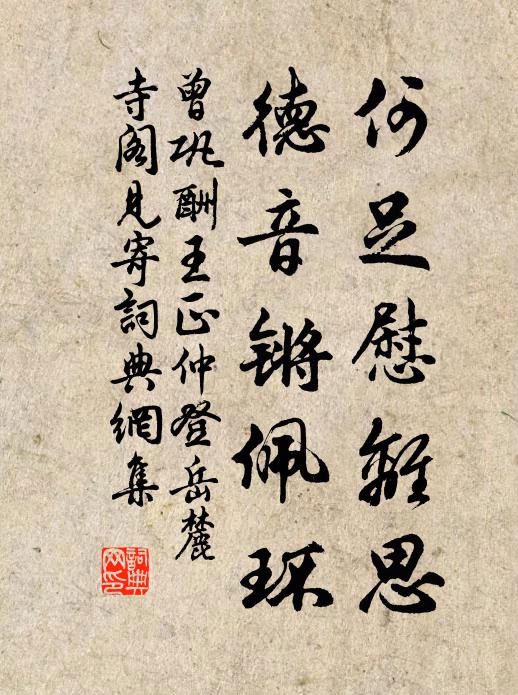 何足慰離思
德音鏘佩環
曾巩酬王正仲登岳麓
寺阁見寄詞典網集
詞典网印